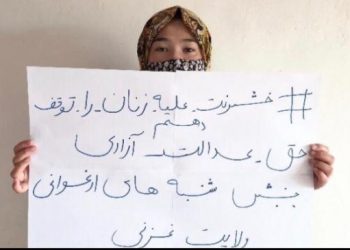 # خشونت_علیه_زنان_را_توقف
دهیم
حق_عدالت_آزادی
جنبش شنبه های ارغوانی
ولایت غزنی